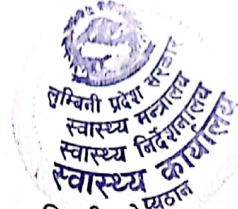 लुम्बिनी प्रदेश सरकार
स्वास्थ्य मन्त्रालय
स्वास्थ्य निर्देशनालय
स्वास्थ्य कार्यालय
प्यूठान